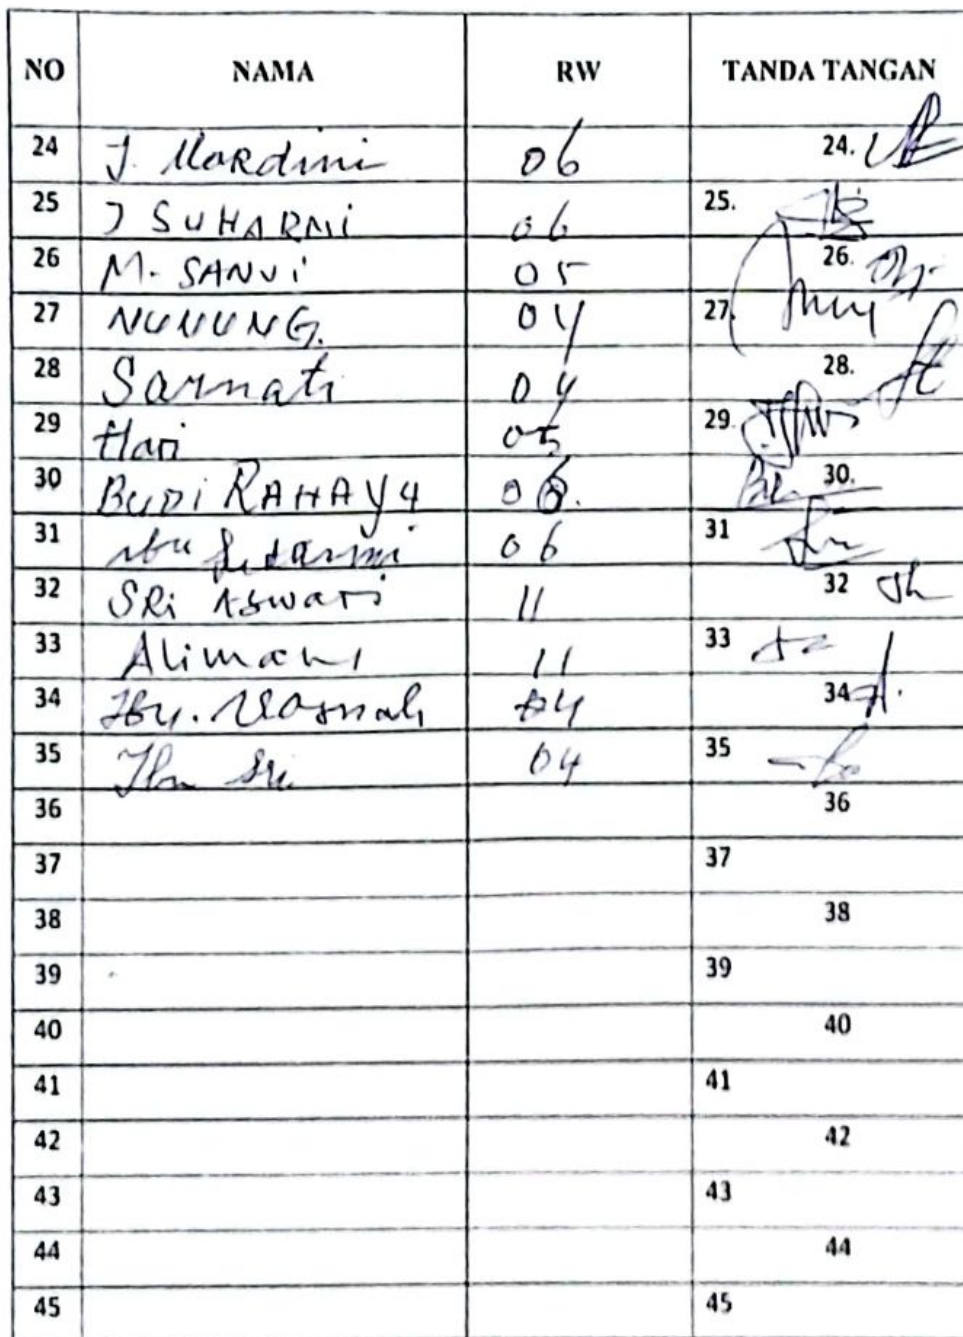 NO NAMA RW TANDA TANGAN
24 J. Mardini 06 24.
25 J SUHARMI 06 25.
26 M. SANUi 05 26.
27 NUNUNG. 04 27.
28 Sarnati 04 28.
29 Hari 05 29.
30 BUDi RAHAYU 06. 30.
31 ibu 06 31
32 SRi Aswari 11 32
33 Alimah 11 33
34 Iby. 04 34
35 Ibu Sri 04 35
36 36
37 37
38 38
39 39
40 40
41 41
42 42
43 43
44 44
45 45